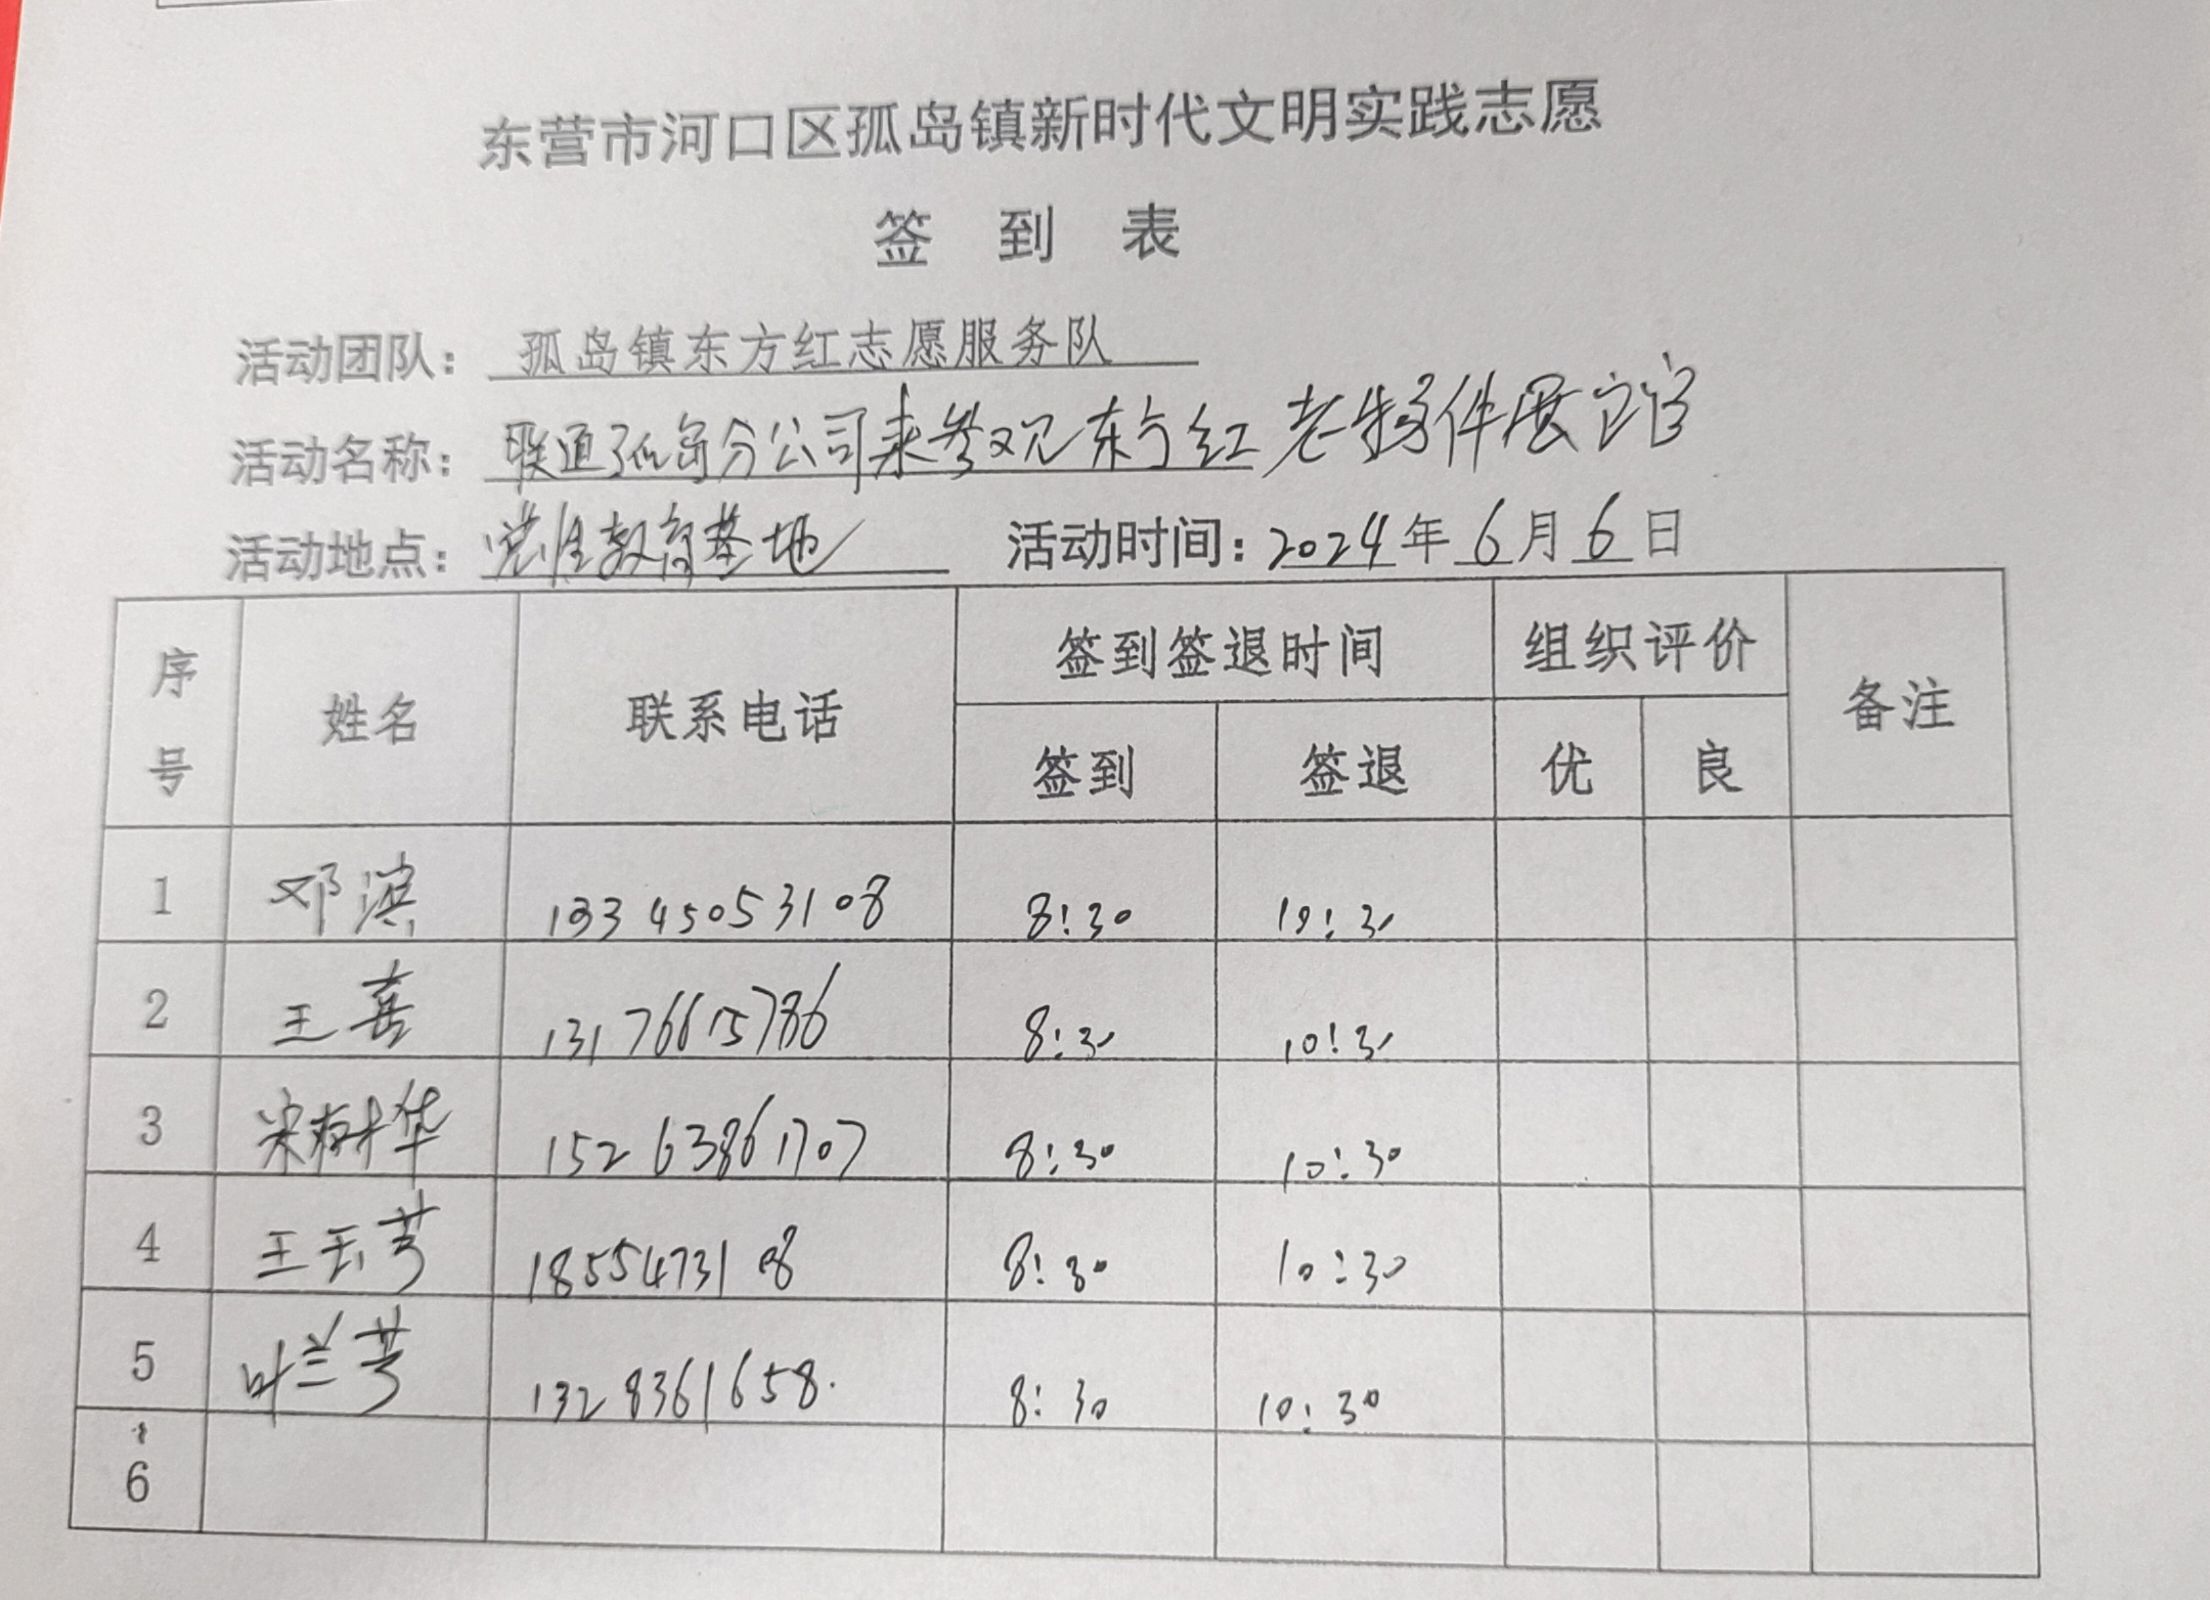 东营市河口区孤岛镇新时代文明实践志愿
签 到 表
活动团队：孤岛镇东方红志愿服务队
活动名称：联通孤岛分公司来参观东方红老物件展馆
活动地点：党性教育基地 活动时间：2024年6月6日
序号 姓名 联系电话 签到签退时间 组织评价 备注
签到 签退 优 良
1 邓滨 13345053108 8:30 10:30
2 王喜 13176615786 8:30 10:30
3 宋树华 15263861707 8:30 10:30
4 王玉芳 1855473108 8:30 10:30
5 叶兰芳 1328361658. 8:30 10:30
6